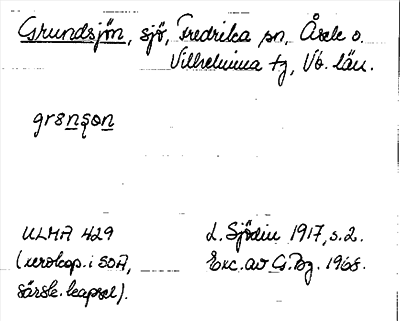 Grundsjön, sjö, Fredrika sn, Åsele o.
Vilhelmina tg, Vb. län.
ULMA 429
L. Sjödin 1917, s. 2.
(xerokop. i SOA,
Exc. av G. Bg. 1968.
särsk. kapsel).